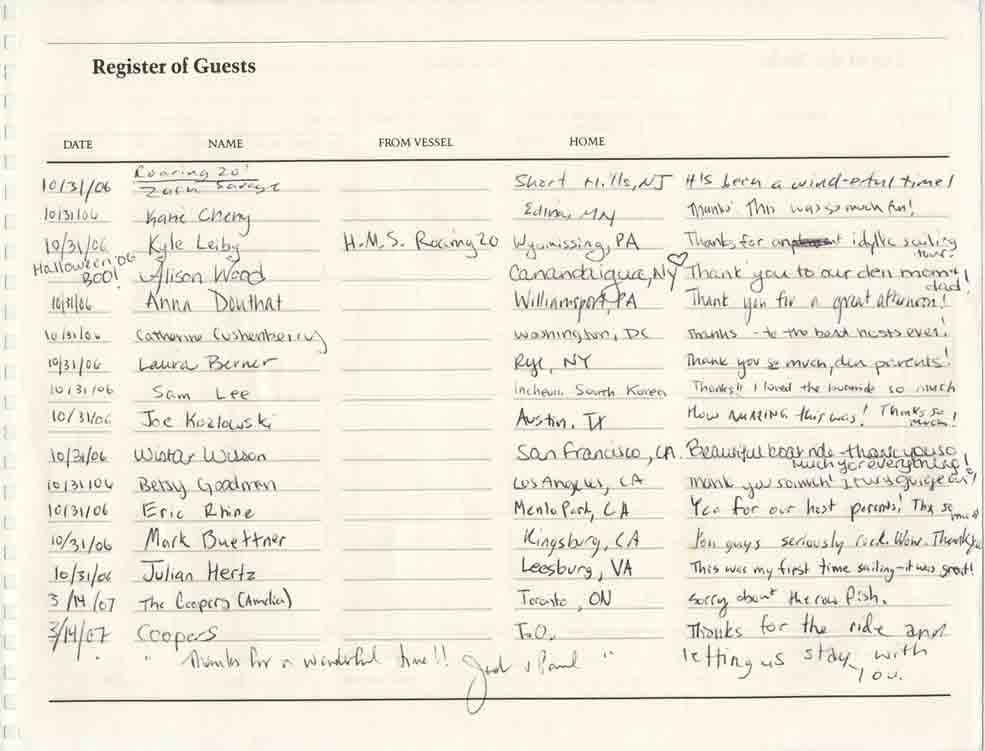 Register of Guests
DATE NAME FROM VESSEL HOME
Roaring 20'
10/31/06 Zach Savage Short Hills, NJ It's been a wind-erful time!
10/31/06 Katie Cheng Edina, MN Thanks! This was so much fun!
10/31/06 Kyle Leiby H.M.S. Roaring 20 Wyomissing, PA Thanks for an idyllic sailing tour!
Halloween '06 BOO! Alison Wood Canandaigua, NY Thank you to our den mom & dad!
10/31/06 Anna Douthat Williamsport, PA Thank you for a great afternoon!
10/31/06 Catherine Cushenberry Washington, DC Thanks - to the best hosts ever!
10/31/06 Laura Berner Rye, NY Thank you so much, den parents!
10/31/06 Sam Lee Incheon, South Korea Thanks!! I loved the boatride so much
10/31/06 Joe Kozlowski Austin, TX How AMAZING this was! Thanks so much!
10/31/06 Wistar Wilson San Francisco, CA Beautiful boat ride - thank you so much for everything!
10/31/06 Betsy Goodman Los Angeles, CA Thank you so much! It was
10/31/06 Eric Rhine Menlo Park, CA Yea for our host parents! Thx so much
10/31/06 Mark Buettner Kingsburg, CA You guys seriously rock. Wow. Thank you
10/31/06 Julian Hertz Leesburg, VA This was my first time sailing - it was great!
3/14/07 The Coopers (Amelia) Toronto, ON Sorry about the raw fish.
3/14/07 Coopers T.O. Thanks for the ride and
" " Thanks for a wonderful time!! " letting us stay with you.